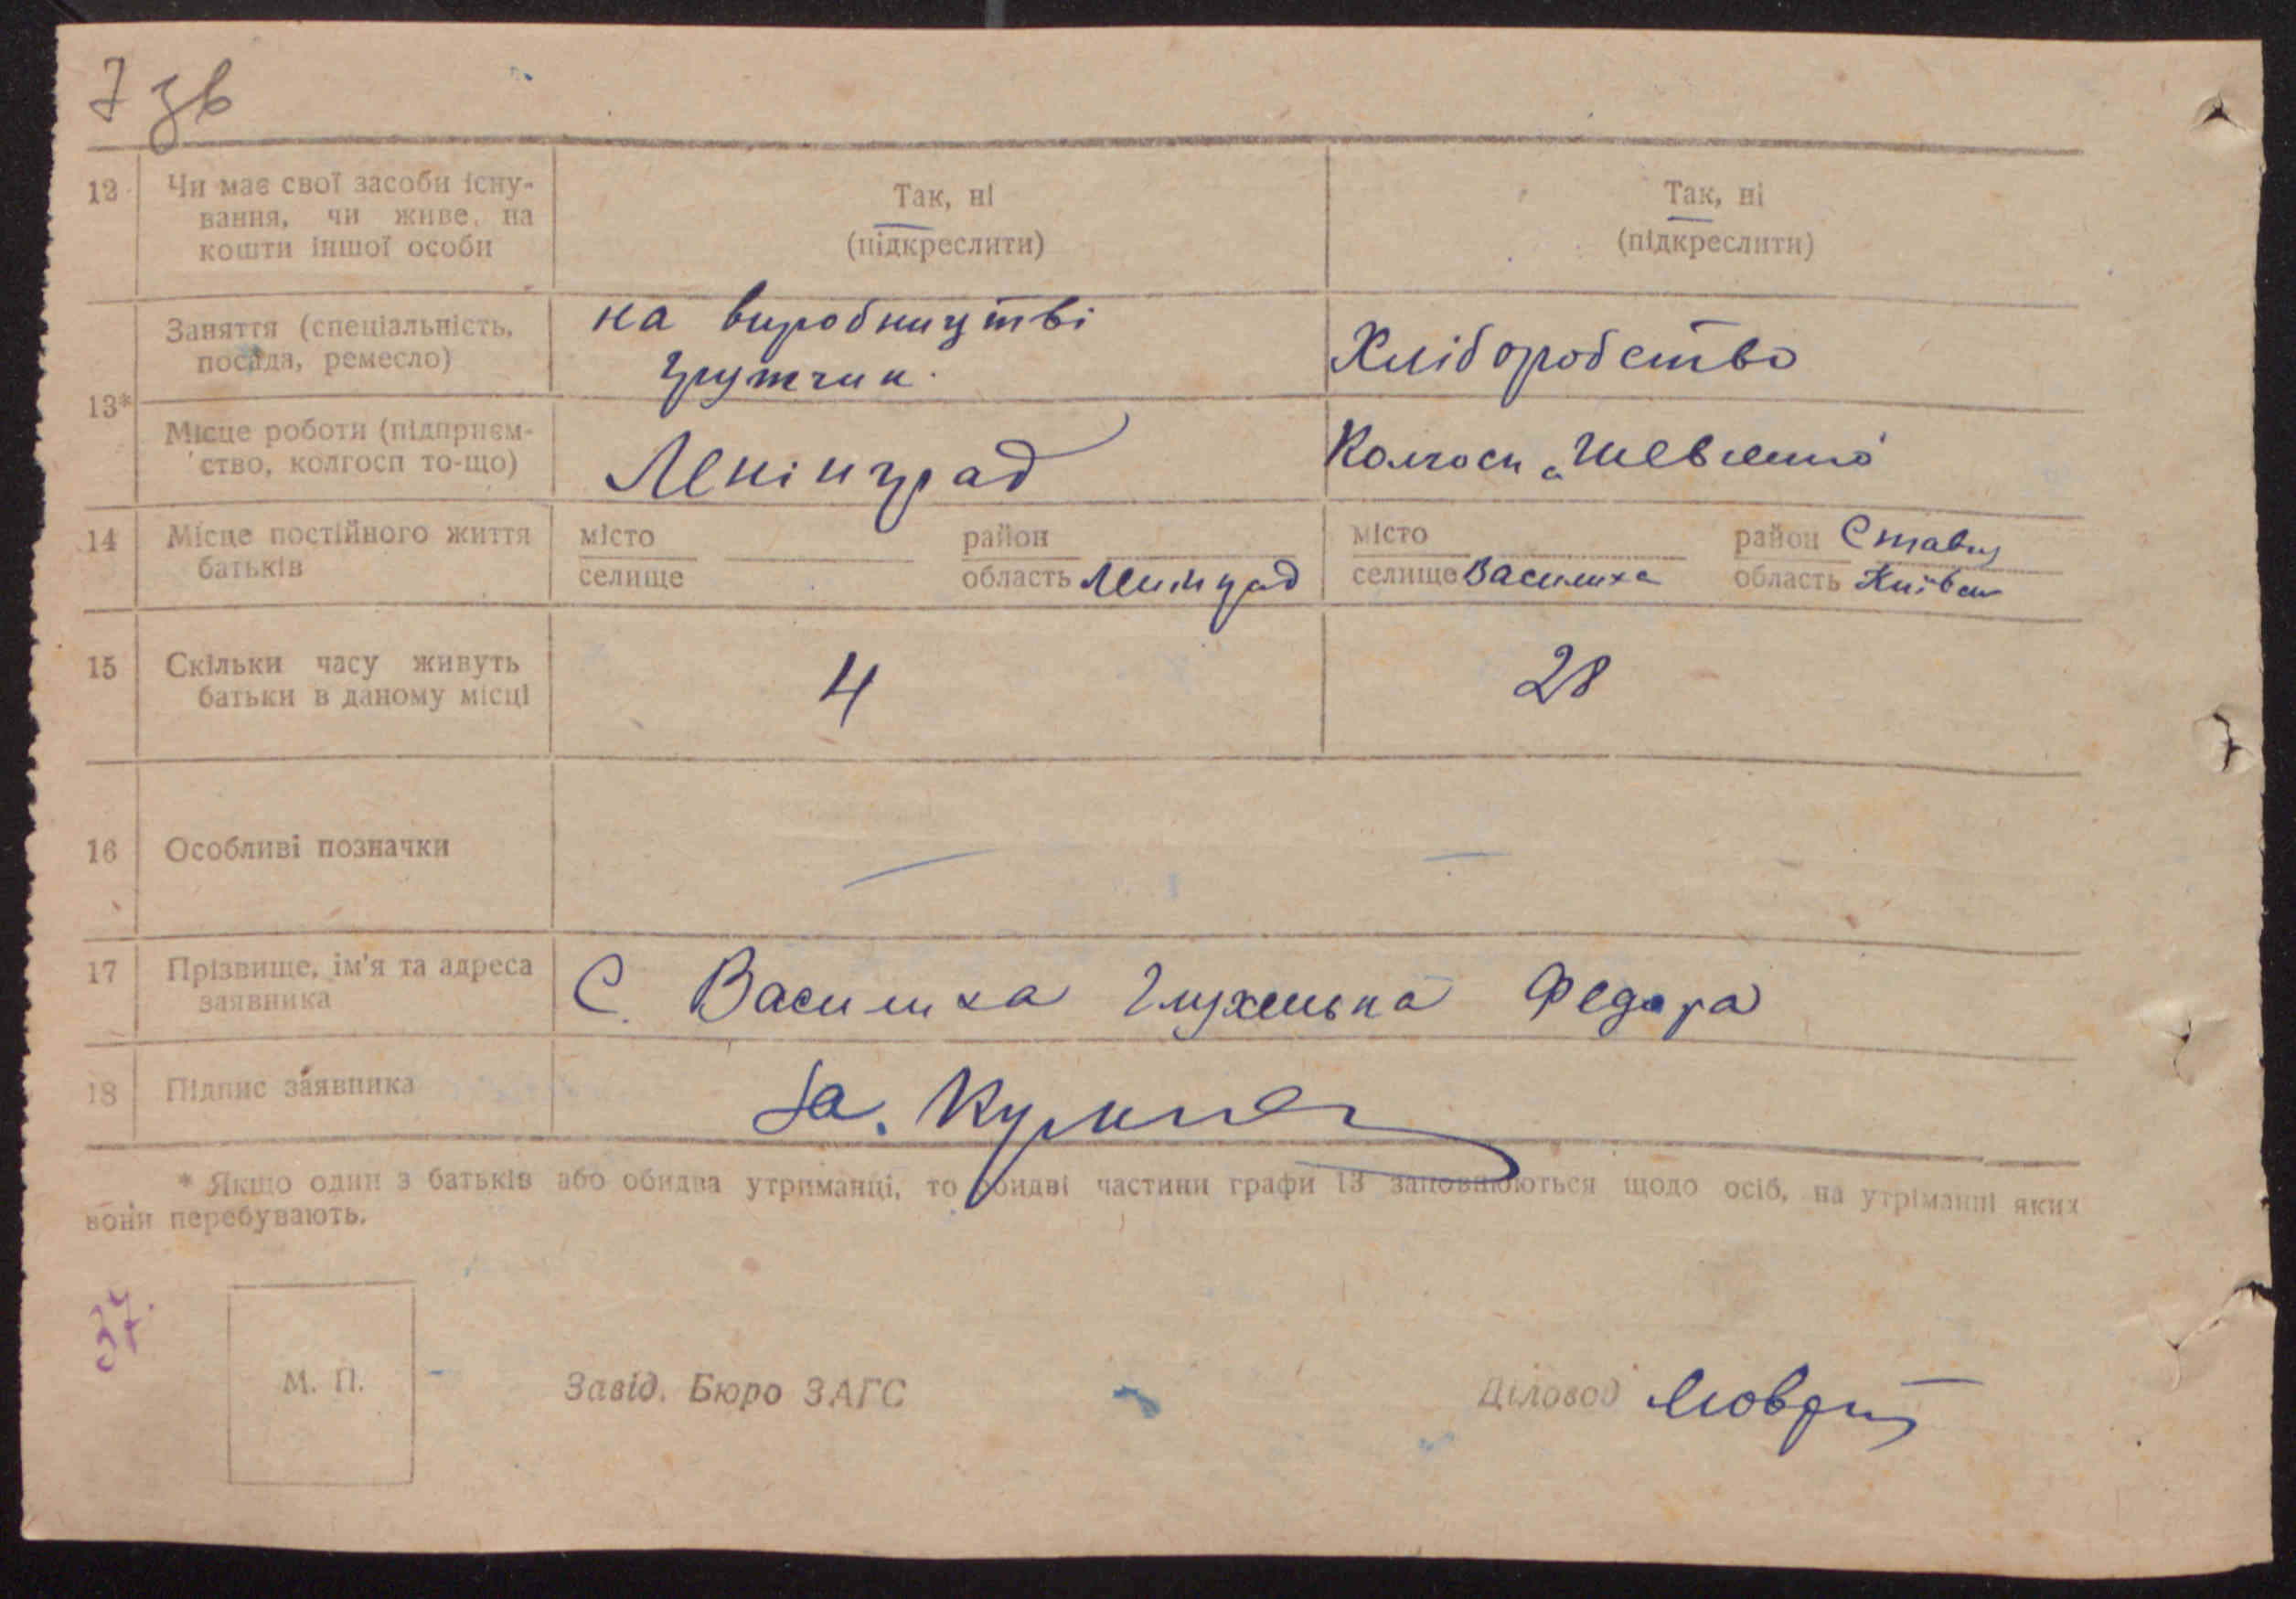 7 зв
12 Чи має свої засоби існу-
вання, чи живе на
кошти іншої особи
Так, ні
(підкреслити)
Так, ні
(підкреслити)
13*
Заняття (спеціальність,
посада, ремесло)
на виробництві
грутчик
Хліборобство
Місце роботи (підприєм-
ство, колгосп то-що)
Ленінград
Колгосп „Шевченко"
14 Місце постійного життя
батьків
місто
селище
район
область Ленінград
місто
селище Василиха
район Ставищ
область Київськ
15 Скільки часу живуть
батьки в даному місці
4
28
16 Особливі позначки
— —
17 Прізвище, ім'я та адреса
заявника
С. Василиха Глухенька Федора
18 Підпис заявника
За.
* Якщо один з батьків або обидва утриманці, то обидві частини графи 13 заповнюються щодо осіб, на утріманні яких
вони перебувають.
37.
М. П.
Завід. Бюро ЗАГС
Діловод